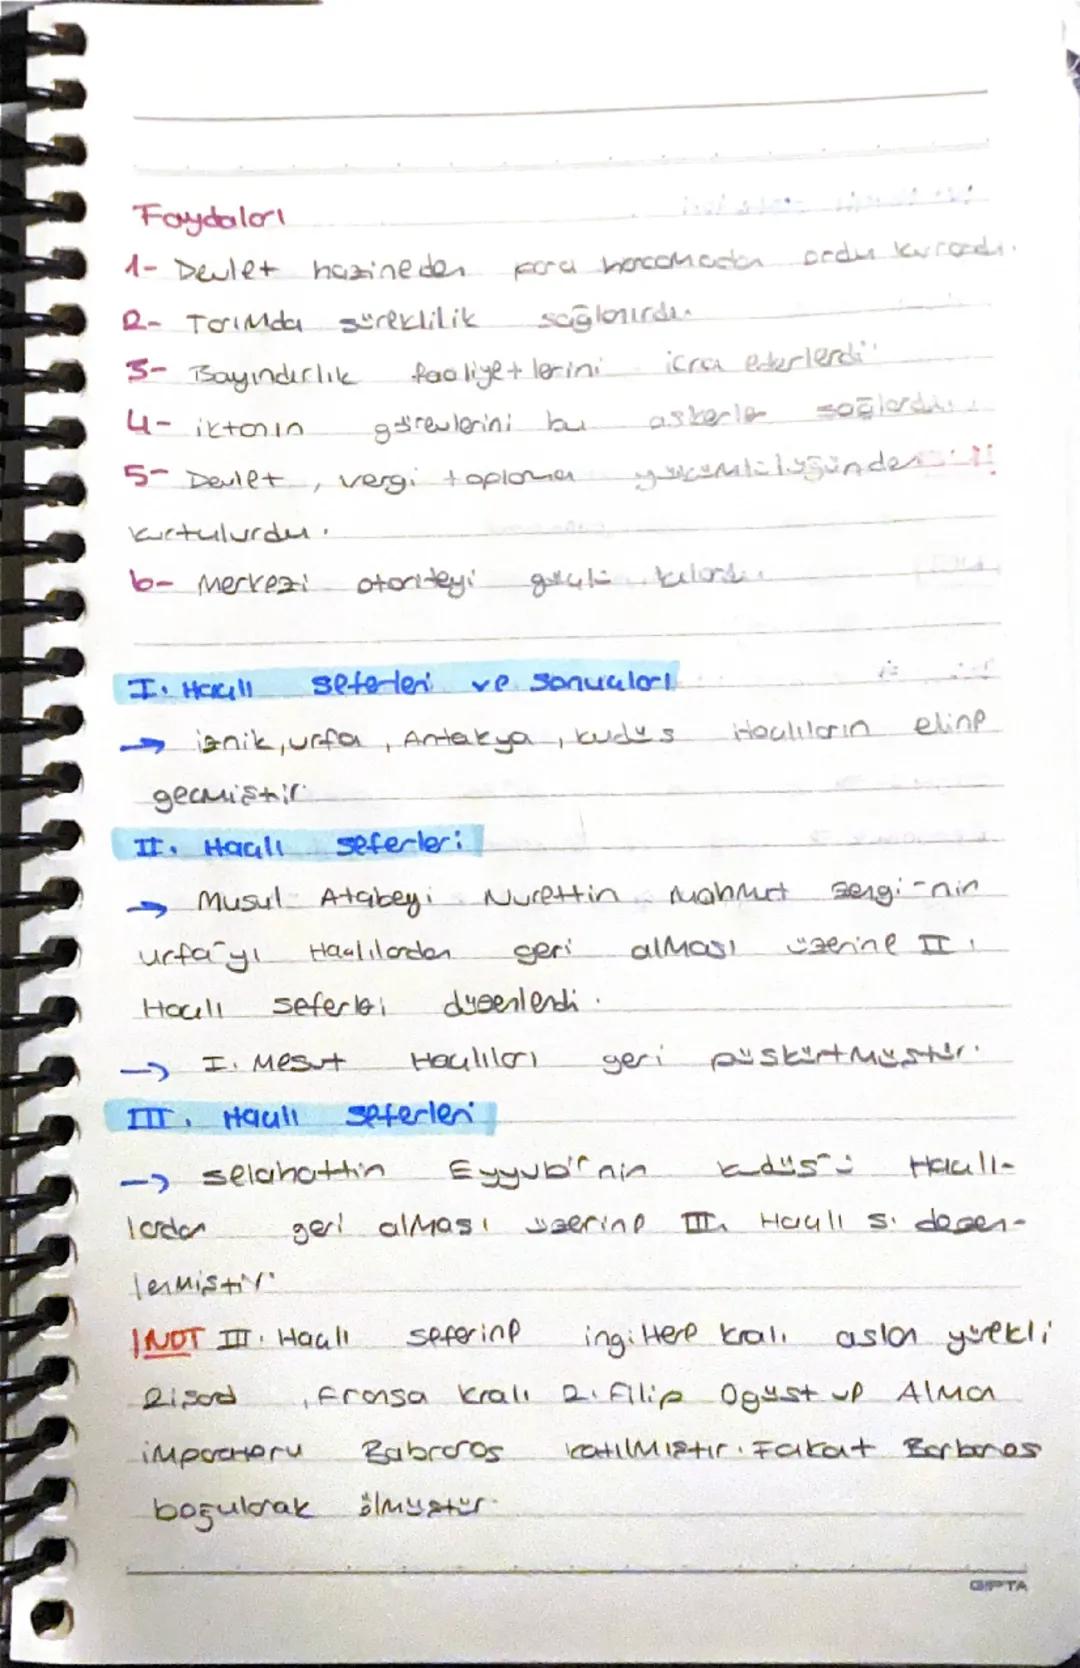 Faydaları
1- Devlet hazineden para harcamadan ordu kurardı.
2- Tarımda süreklilik sağlanırdı.
3- Bayındırlık faaliyetlerini icra ederlerdi
4- iktanın görevlerini bu askerler sağlardı.
5- Devlet, vergi toplama yükümlülüğünden
kurtulurdu.
6- Merkezi otoriteyi güçlü kılardı.
I. Haçlı seferleri ve sonuçları
→ iznik, urfa, Antakya, kudüs Haçlıların eline
geçmiştir.
II. Haçlı seferleri
→ Musul Atabeyi Nurettin Mahmut zengi-nin
urfa'yı Haçlılardan geri alması üzerine II.
Haçlı seferleri düzenlendi.
→ I. Mesut Haçlıları geri püskürtmüştür.
III. Haçlı seferleri
→ selahattin Eyyubi'nin kudüs'ü Haçlı-
lardan geri alması üzerine III. Haçlı s. düzen-
lenmiştir.
!NOT III. Haçlı seferine ingiltere kralı aslan yürekli
Rişard, fransa kralı 2. filip Ogüst ve Alman
imparatoru Babraros katılmıştır. Fakat Barbaros
boğularak ölmüştür.
GIPTA